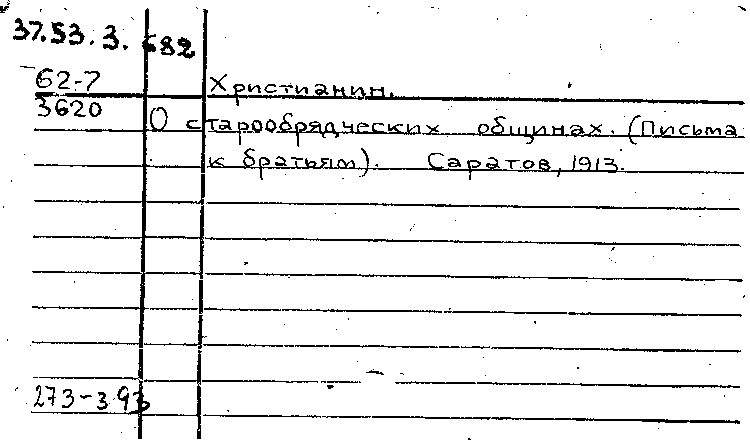 37.53.3.682
62-7
3620
Христианин.
О старообрядческих общинах. (Письма
к братьям). Саратов, 1913.
273-393